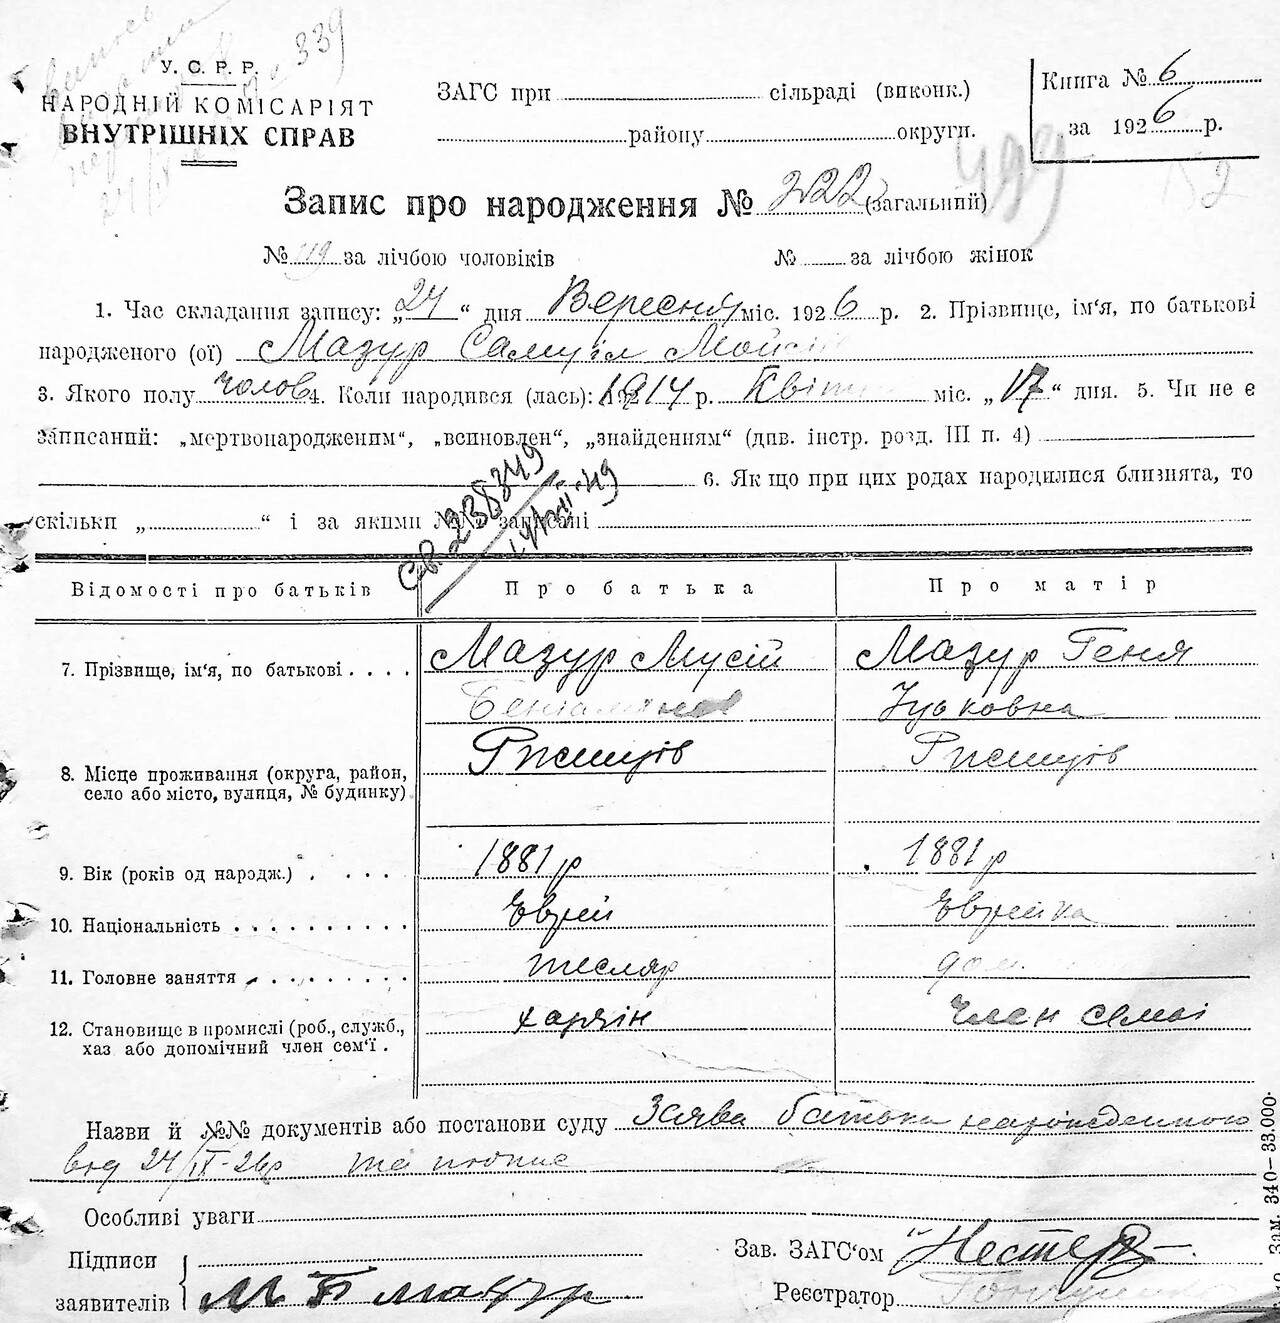 У. С. Р. Р.
НАРОДНІЙ КОМІСАРІЯТ
ВНУТРІШНІХ СПРАВ
339
ЗАГС при сільраді (виконк.)
району округи.
Книга № 6
за 1926 р.
499
Запис про народження № 222 (загальний)
№ 119 за лічбою чоловіків № за лічбою жінок
1. Час складання запису: „24“ дня Вересня міс. 1926 р. 2. Прізвище, ім‘я, по батькові
народженого (ої) Мазур Самуїл Мойсій
3. Якого полу чолов 4. Коли народився (лась): 1914 р. Квітня міс. „17“ дня. 5. Чи не є
записаний: „мертвонародженим“, „всиновлен“, „знайденням“ (див. інстр. розд. III п. 4)
6. Як що при цих родах народилися близнята, то
скільки „ “ і за якими №№ записані
св. 238349
Відомості про батьків Про батька Про матір
7. Прізвище, ім‘я, по батькові . . . . Мазур Мусій Мазур Геня
Юльковна
8. Місце проживання (округа, район, Ржищів Ржищів
село або місто, вулиця, № будинку)
9. Вік (років од народж.) . . . . . 1881 р 1881 р
10. Національність . . . . . . . . . . Єврей Єврейка
11. Головне заняття . . . . . . . . тесляр дом.
12. Становище в промислі (роб., служб., хазяїн Член семьї
хаз або допомічний член сем‘ї .
Назви й №№ документів або постанови суду Заява батька народженного
від 24/IX-26р та подпис
Особливі уваги
Підписи
заявителів М Б Мазур
Зав. ЗАГС‘ом Нестер
Реєстратор
Зам. 340—33.000.